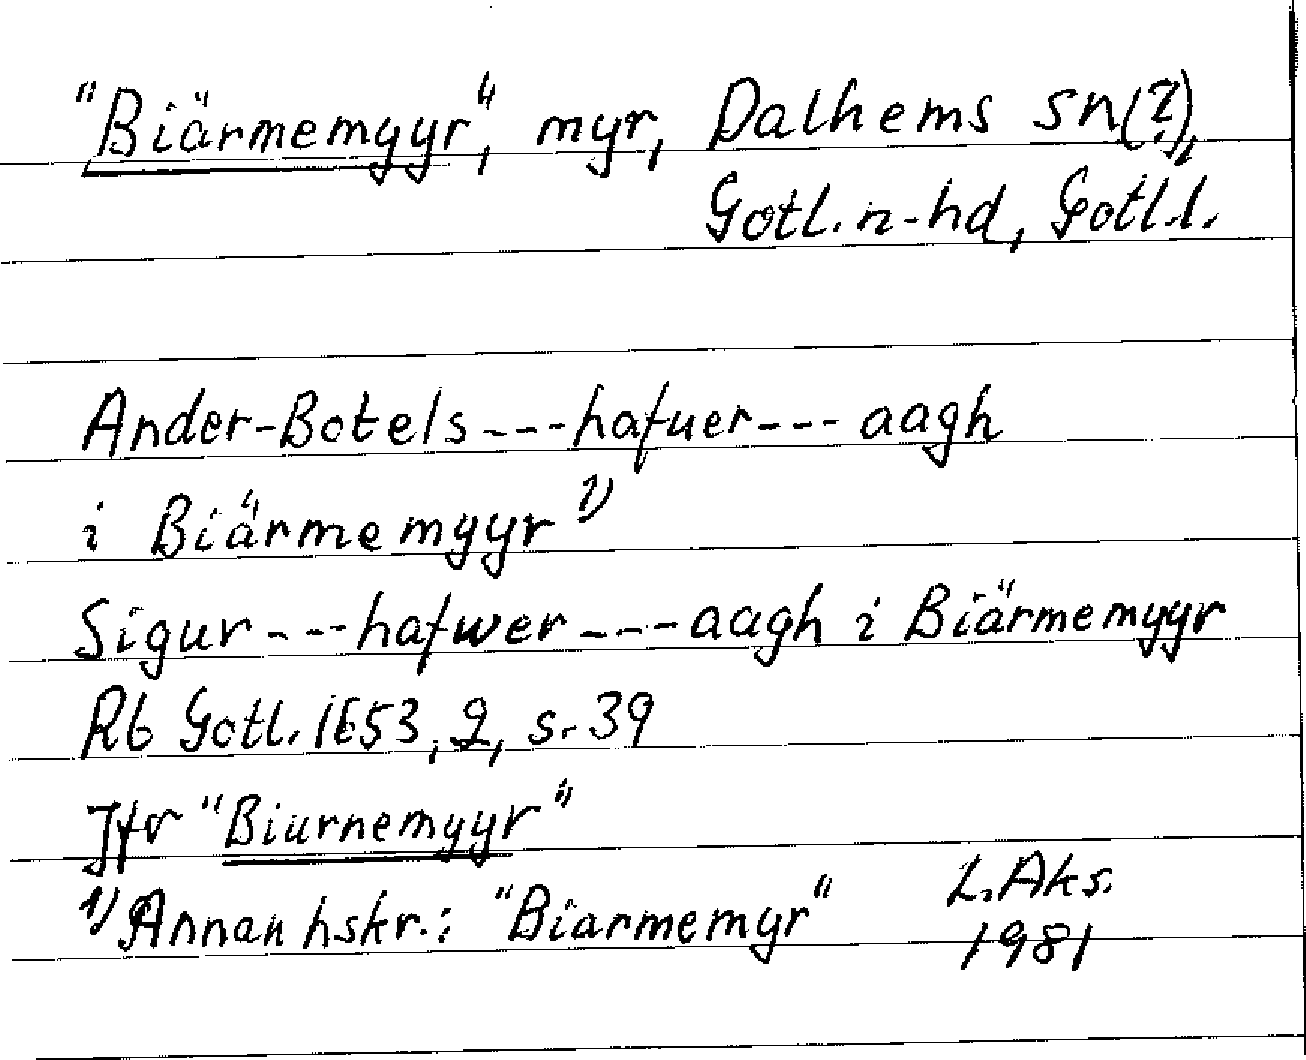 "Biärmemyyr", myr, Dalhems sn(?),
Gotl. n-hd, Gotl.l.
Ander-Botels---hafuer---aagh
i Biärmemyyr 1)
Sigur---hafwer---aagh i Biärmemyyr
Rb Gotl. 1653, 2, s. 39
Jfr "Biurnemyyr"
1) Annan hskr.: "Biarmemyr"
L. Aks.
1981